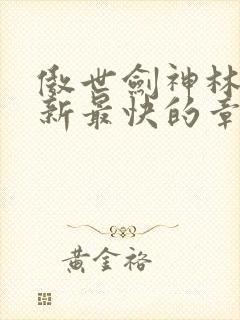 傲世劍神林
新最快的章
黃金裕